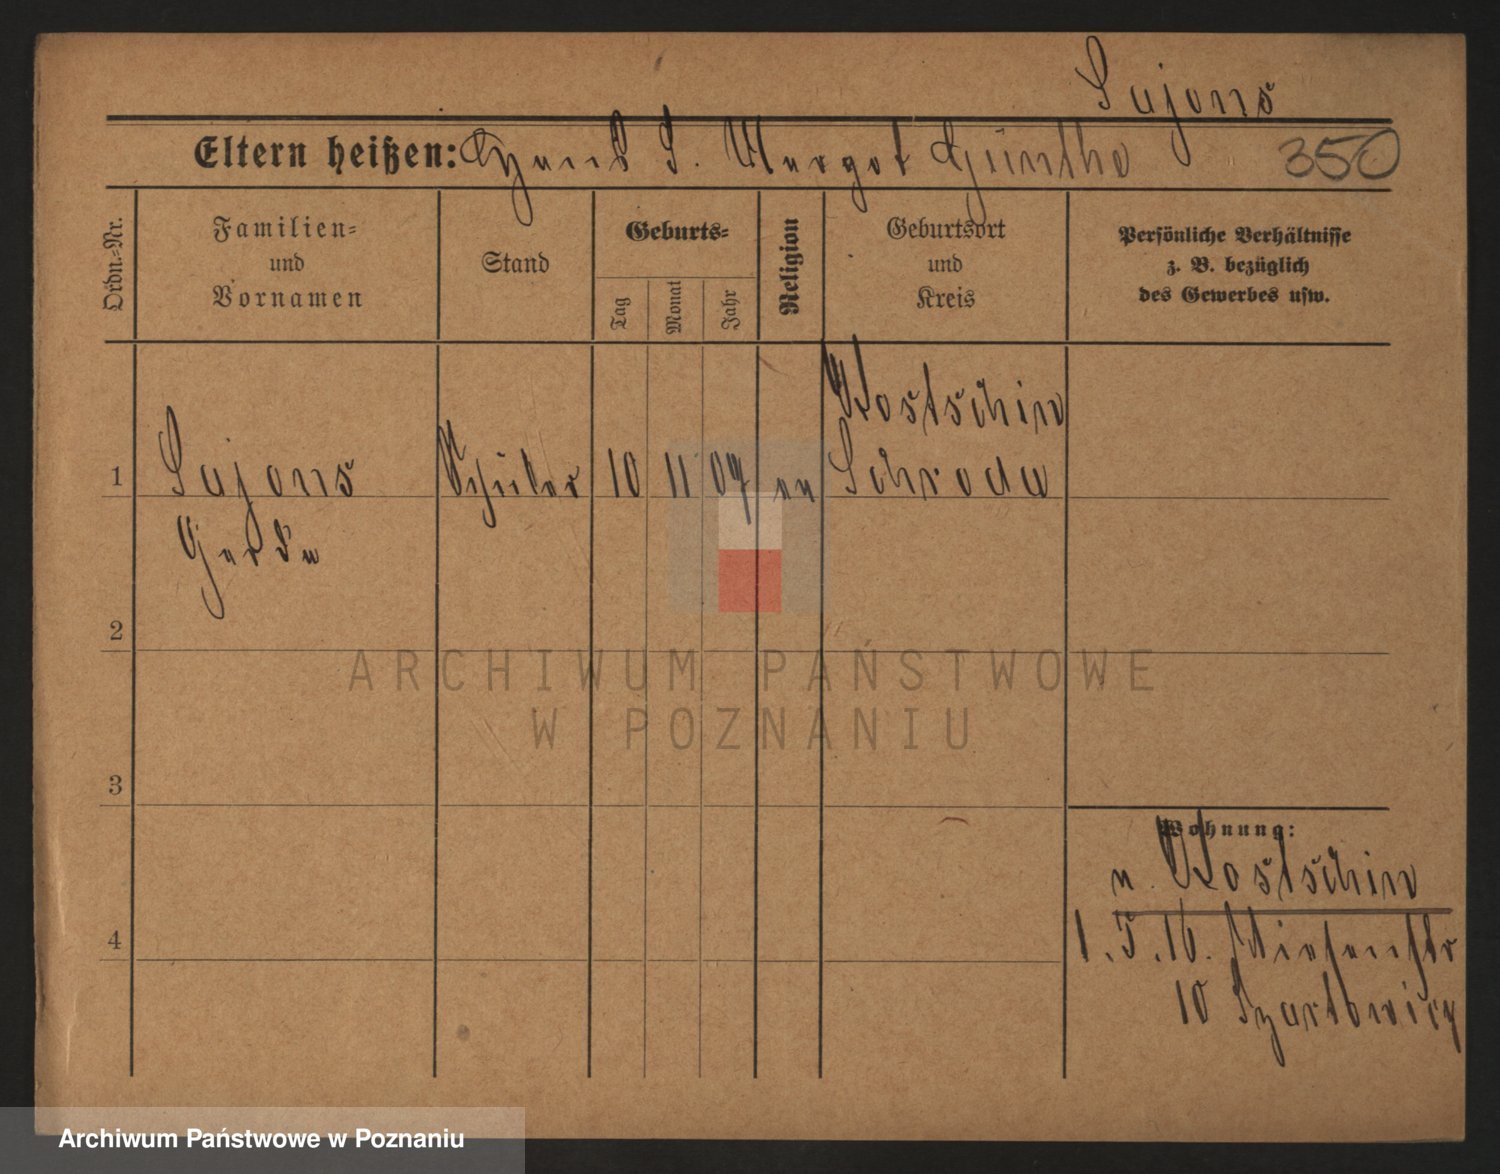 Sujons
Eltern heißen: Margot Günthe 350
Ordn.-Nr.
Familien-
und
Vornamen
Stand
Geburts-
Tag
Monat
Jahr
Religion
Geburtsort
und
Kreis
Persönliche Verhältnisse
z. B. bezüglich
des Gewerbes usw.
Kostschin
1 Sujons Schüler 10 11 07 ev Schroda
Gerda
2
3
4
Wohnung:
n. Kostschin
1. 16. Wiesenstr
10
ARCHIWUM PAŃSTWOWE
W POZNANIU
Archiwum Państwowe w Poznaniu